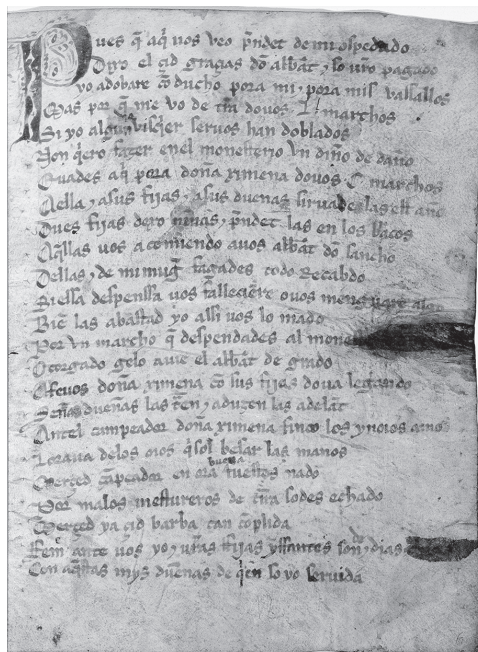 Pues q̃ aq̃ uos veo p̃ndet de mi ospedado
Dixo el çid graçias dõ abbat ⁊ so uro pagado
yo adobare cõ ducho pora mi ⁊ pora mis vassallos
Mas por q̃ me vo de tr̃ra douos L marchos
Si yo algun visq̃er seruos han doblados
Non q̃ero fazer enel monesterio vn diño de daño
Euades aq̃ pora doña ximena douos C marchos
Aella ⁊ asus fijas ⁊ asus dueñas siruades las est año
Dues fijas dexo niñas ⁊ p̃ndet las en los braços
Aq̃llas uos acomiendo auos abbat dõ sancho
Dellas ⁊ de mi mug̃ fagades todo Recabdo
Si essa despenssa uos falleçiere ouos menguare algo
Biẽ las abastad yo assi uos lo mãdo
Por vn marcho q̃ despendades al mone
Otorgado gelo auie el abbat de grado
Afeuos doña ximena cõ sus fijas do ua legando
Señas dueñas las trãen ⁊ aduzen las adelãt
Antel campeador doña ximena finco los ynoios amos
Loraua delos oios q̃sol besar las manos
Merçed cãpeador en ora buena fuestes nado
Por malos mestureros de tr̃ra sodes echado
Merçed ya çid barba tan cõplida
ffem ante uos yo ⁊ uras ffijas yffantes son ⁊ de dias
Con aq̃stas mys dueñas de q̃en so yo seruida